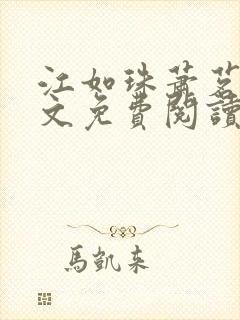 江如珠蕭茗
文免費閱讀
馬凱來